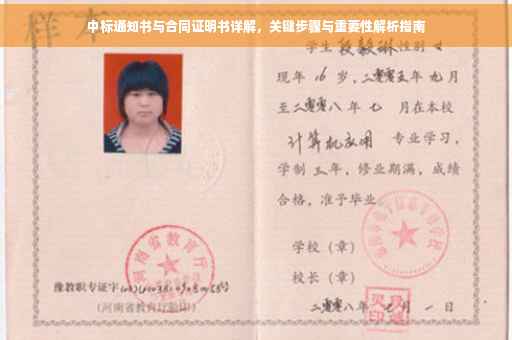 中标通知书与合同证明书详解，关键步骤与重要性解析指南
样本
学生 段毅琳 性别 女
现年 16 岁，二零零五年 九月
至二零零八年 七 月在本校
计算机应用 专业学习，
学制 三 年，修业期满，成绩
合格，准予毕业。
河南省教育厅
学校（章）
校长（章）
豫教职专证字
（河南省教育厅验印）
二零零八年 七 月 一 日